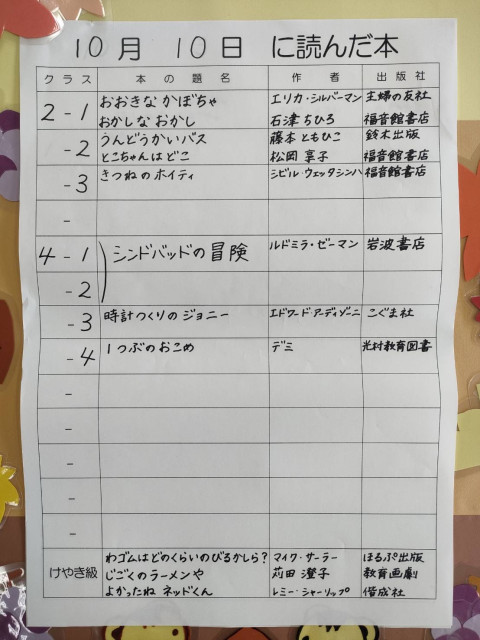 10月 10日 に読んだ本
クラス 本の題名 作者 出版社
2-1 おおきなかぼちゃ エリカ・シルバーマン 主婦の友社
おかしなおかし 石津ちひろ 福音館書店
-2 うんどうかいバス 藤本ともひこ 鈴木出版
とこちゃんはどこ 松岡享子 福音館書店
-3 きつねのホイティ シビル・ウェッタシンハ 福音館書店
-
4-1 シンドバッドの冒険 ルドミラ・ゼーマン 岩波書店
-2
-3 時計つくりのジョニー エドワード・アーディゾーニ こぐま社
-4 1つぶのおこめ デミ 光村教育図書
-
-
-
-
-
けやき級 わゴムはどのくらいのびるかしら? マイク・サーラー ほるぷ出版
じごくのラーメンや 苅田澄子 教育画劇
よかったねネッドくん レミー・シャーリップ 偕成社